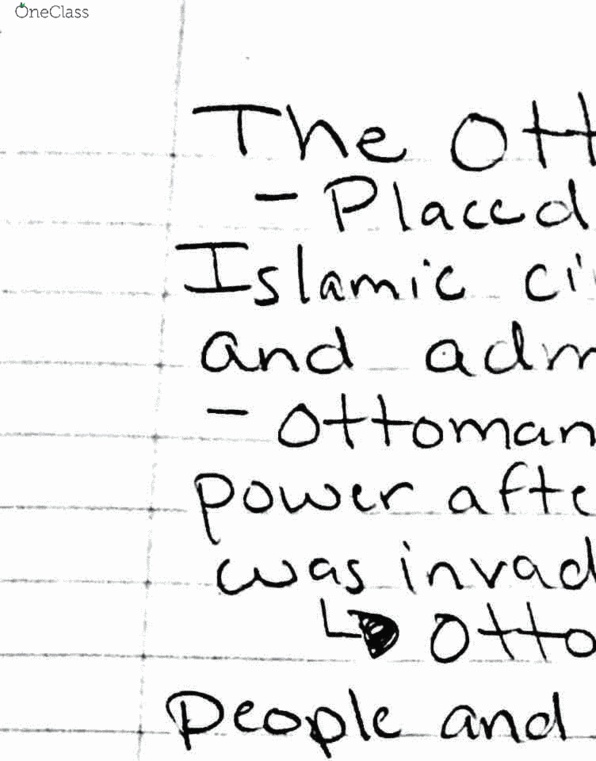 OneClass
The Ott
- Placed
Islamic ci
and adm
- Ottoman
power afte
was invad
↳ Otto
people and